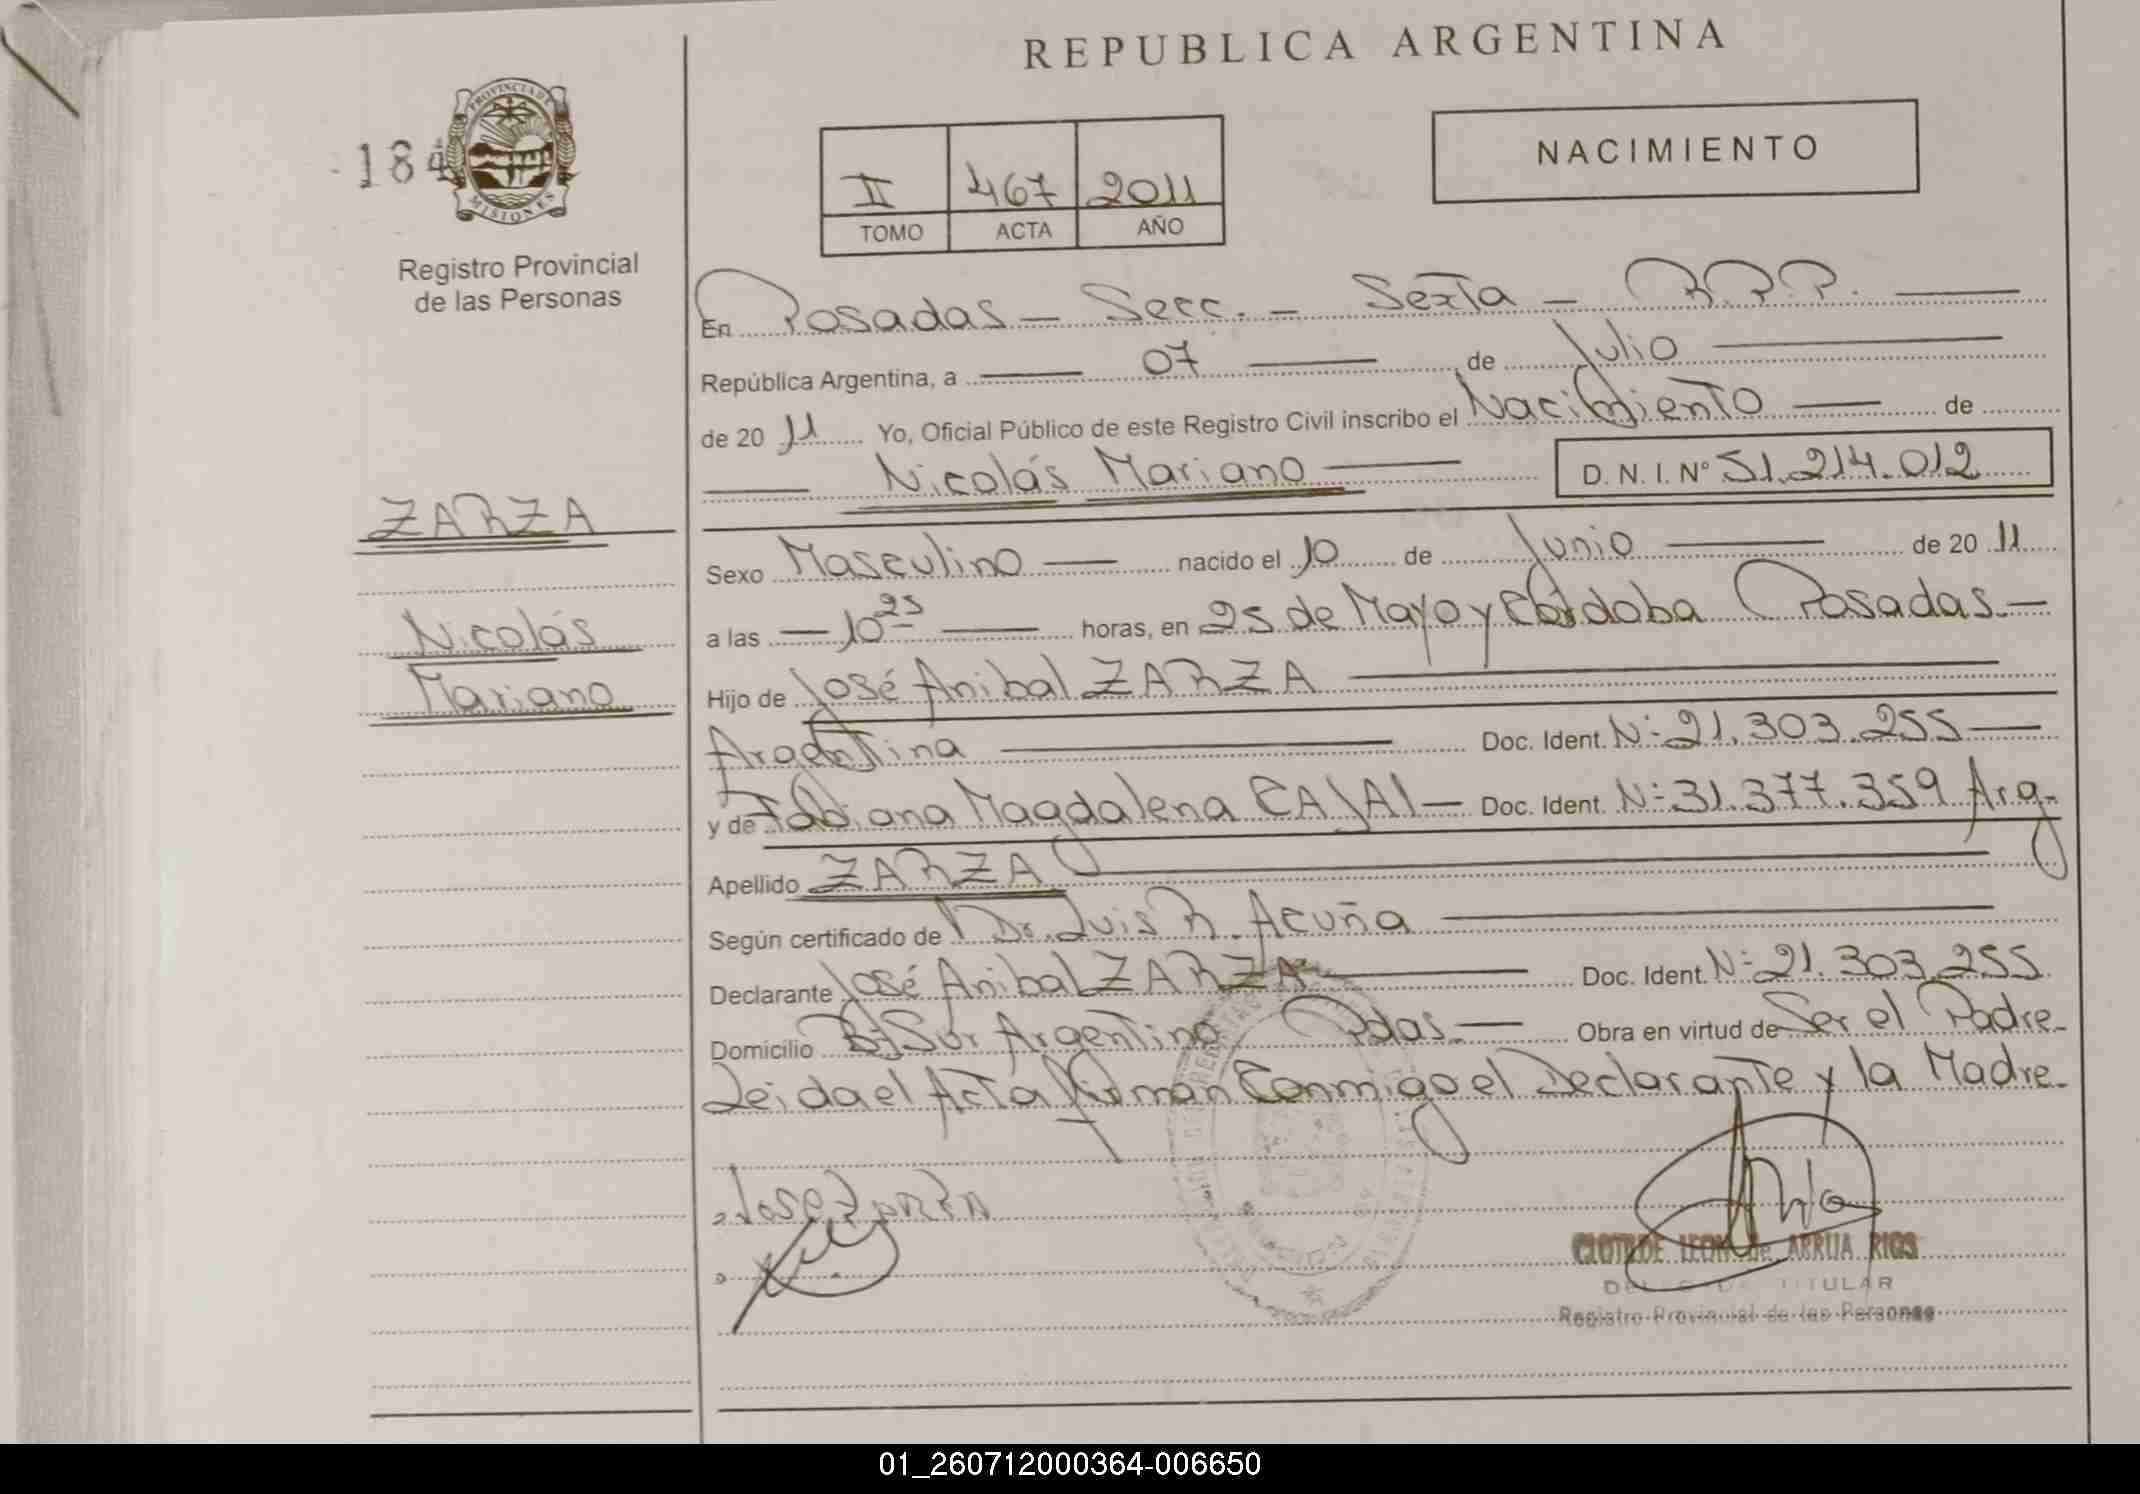 REPUBLICA ARGENTINA
184
PROVINCIA DE
MISIONES
Registro Provincial
de las Personas
II 467 2011
TOMO ACTA AÑO
NACIMIENTO
En Posadas - Secc. - Sexta - R.P.P.
República Argentina, a 07 de Julio
de 20 11 Yo, Oficial Público de este Registro Civil inscribo el Nacimiento de
Nicolás Mariano D. N. I. Nº 51.214.012
ZARZA
Nicolás
Mariano
Sexo Masculino nacido el 10 de Junio de 20 11
a las 10 25 horas, en 25 de Mayo y Córdoba Posadas.
Hijo de José Anibal ZARZA
Argentina Doc. Ident. Nº 21.303.255
y de Fabiana Magdalena CAJAL Doc. Ident. Nº 31.377.359 Arg.
Apellido ZARZA
Según certificado de Dr. Luis R. Acuña
Declarante José Anibal ZARZA Doc. Ident. Nº 21.303.255
Domicilio Bº Sur Argentino Pdas. Obra en virtud de Ser el Padre.
Leida el Acta Firman Conmigo el Declarante y la Madre.
Jose Zarza
CLOTILDE LEON de ARRUA RIOS
TITULAR
Registro Provincial de las Personas
01_260712000364-006650